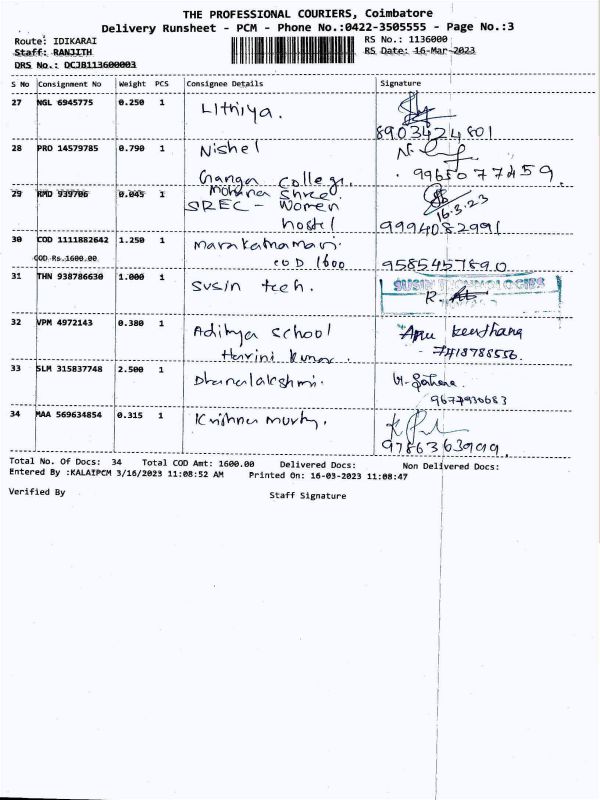 THE PROFESSIONAL COURIERS, Coimbatore
Delivery Runsheet - PCM - Phone No.:0422-3505555 - Page No.:3
Route: IDIKARAI
RS No.: 1136000
Staff: RANJITH
RS Date: 16-Mar-2023
DRS No.: DCJB113600003
S No Consignment No Weight PCS Consignee Details Signature
27 NGL 6945775 0.250 1 Lithiya.
8903424801
28 PRO 14579785 0.790 1 Nishel
Ganga college.
9965077459.
29 RMD 939706 0.045 1 Mohana Shree.
SREC - Women
hostel
16.3.23
9994082991
30 COD 1111882642 1.250 1 marakathamani.
COD Rs.1600.00 COD 1600
9585457890
31 THN 938786630 1.000 1 Susin tech.
SUSIN TECHNOLOGIES
32 VPM 4972143 0.380 1 Aditya school
Harini kumar.
7418788556.
33 SLM 315837748 2.500 1 Dhanalakshmi.
9677930683
34 MAA 569634854 0.315 1 Krishna murthy.
9786363999.
Total No. Of Docs: 34 Total COD Amt: 1600.00 Delivered Docs: Non Delivered Docs:
Entered By :KALAIPCM 3/16/2023 11:08:52 AM Printed On: 16-03-2023 11:08:47
Verified By Staff Signature